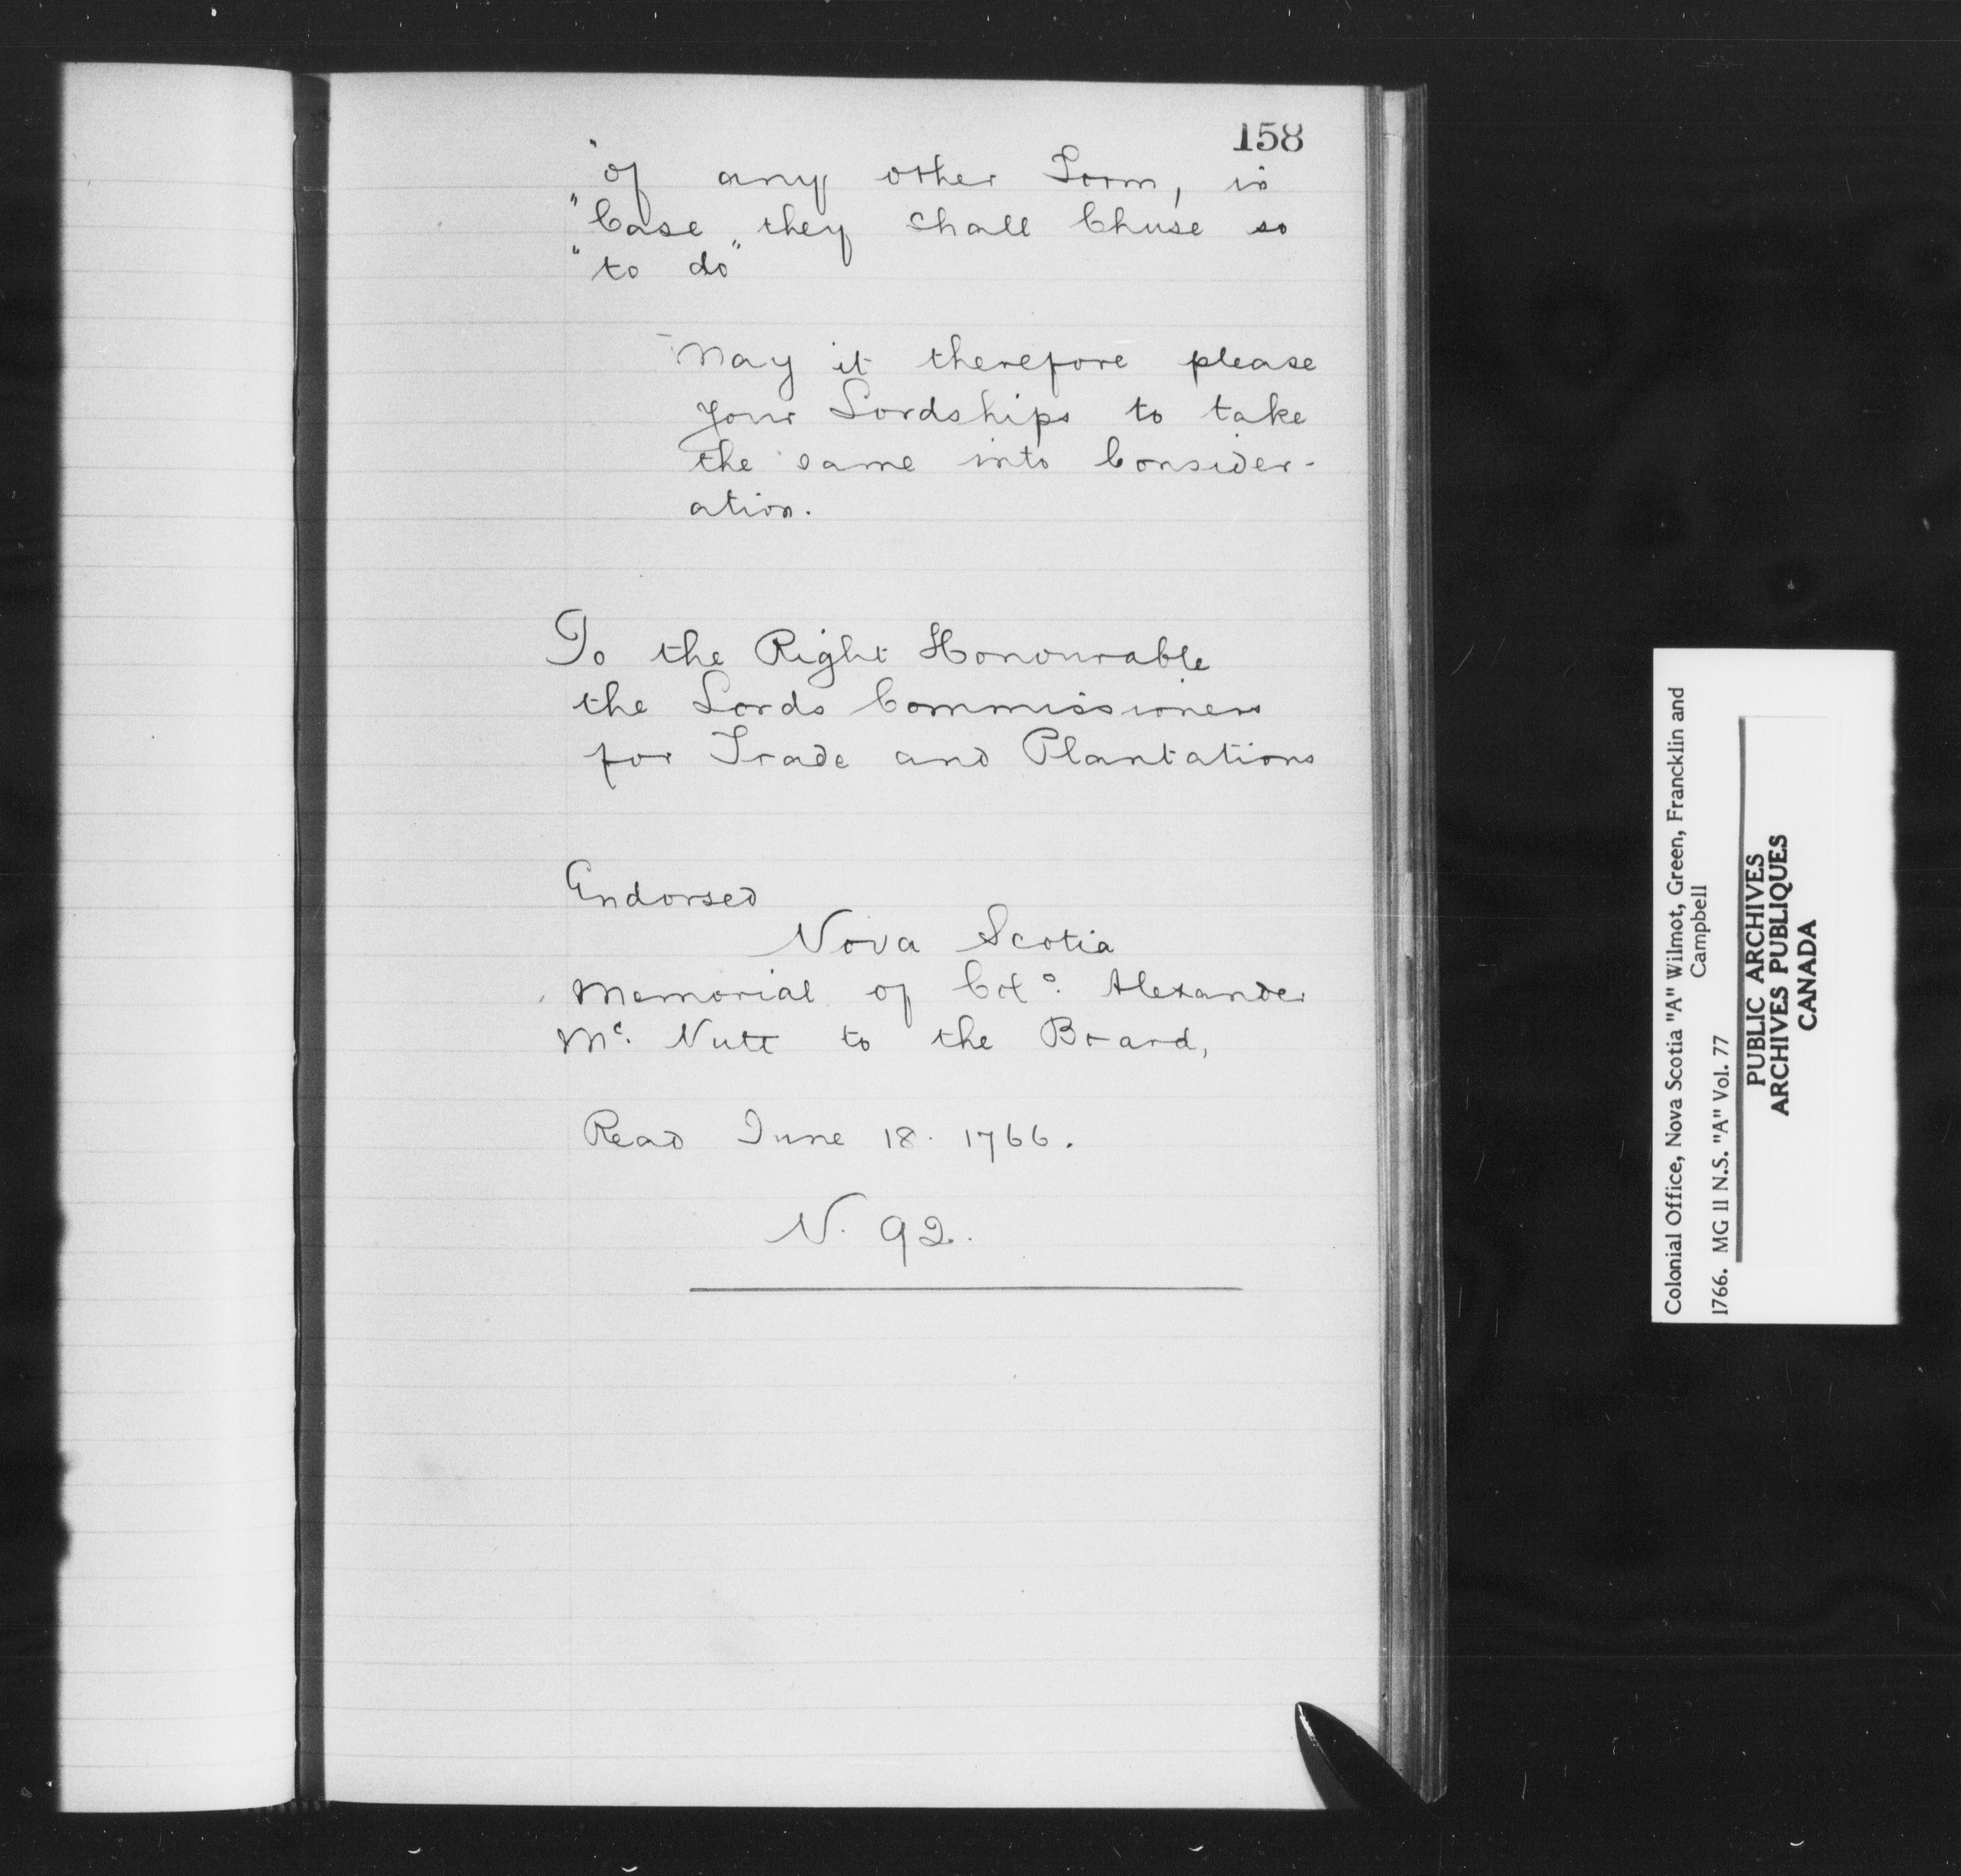 158
"of any other Form, in
"Case they shall Chuse so
"to do"
May it therefore please
Your Lordships to take
the same into Consider-
ation.
To the Right Honourable
the Lords Commissioners
for Trade and Plantations
Endorsed
Nova Scotia
Memorial of Colo. Alexander
Mc. Nutt to the Board,
Read June 18. 1766.
N. 92.
Colonial Office, Nova Scotia "A" Wilmot, Green, Francklin and
Campbell
1766. MG 11 N.S. "A" Vol. 77
PUBLIC ARCHIVES
ARCHIVES PUBLIQUES
CANADA